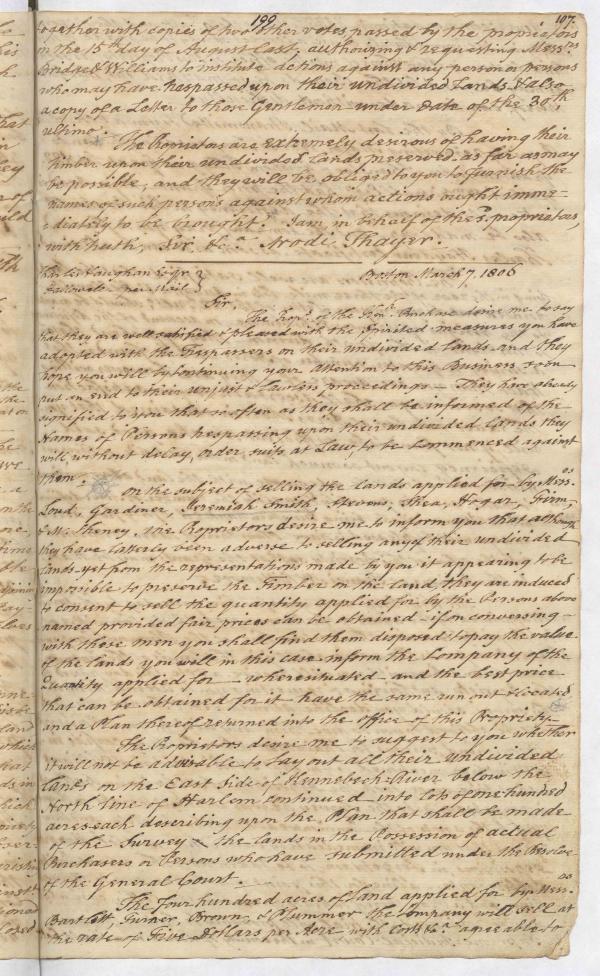 199
107.
together with copies of two other votes passed by the proprietors
on the 15th day of August last, authourizing & requesting Messrs
Bridge & Williams to institute actions against any person or persons
who may have trespassed upon their undivided Lands & also
a copy of a Letter to those Gentlemen under date of the 30th
ultimo.
The Proprietors are extremely desirous of having their
timber upon their undivided Lands preserved as far as may
be possible, and they will be obliged to you to furnish the
names of such persons against whom actions ought imme-
diately to be brought. I am, in behalf of the s. proprietors,
with truth, Sir &c. Arodi Thayer.
Charles Vaughan Esqr
Boston March 7, 1806
Hallowell
Sir,
The Propr. of the Kenr. Purchase desire me to say
that they are well satisfied & pleased with the spirited measures you have
adopted with the Trespassers on their undivided lands and they
hope you will by continuing your attention to this Business soon
put an end to their unjust & lawless proceedings — They have already
signified to you that as often as they shall be informed of the
Names of Persons trespassing upon their undivided Lands they
will without delay, order suits at Law, to be commenced against
them.
On the subject of selling the lands applied for by Messrs
Loud, Gardiner, Jeremiah Smith, Stevens, Shea, Hogar,
& Mc. The Proprietors desire me to inform you that although
they have latterly been adverse to selling any of their undivided
lands yet from the representations made by you it appearing to be
impossible to preserve the Timber on the land they are induced
to consent to sell the quantity applied for by the Persons above
named provided fair prices can be obtained — if on conversing
with these men you shall find them disposed to pay the value
of the lands you will in this case inform the Company of the
Quantity applied for — where situated and the best price
that can be obtained for it have the same run out & located
and a Plan thereof returned into the office of this Propriety.
The Proprietors desire me to suggest to you whether
it will not be adviseable to lay out all their undivided
lands on the East Side of Kennebeck River below the
North line of Harlem continued into lots of one hundred
acres each describing upon the Plan that shall be made
of the Survey the lands in the Possession of actual
Purchasers or Persons who have submitted under the Resolve
of the General Court.
The four hundred acres of land applied for by Messrs
Bartlett, Turner, Brown, & Plummer the Company will sell at
the rate of Five Dollars per Acre with Costs &c. agreeable to